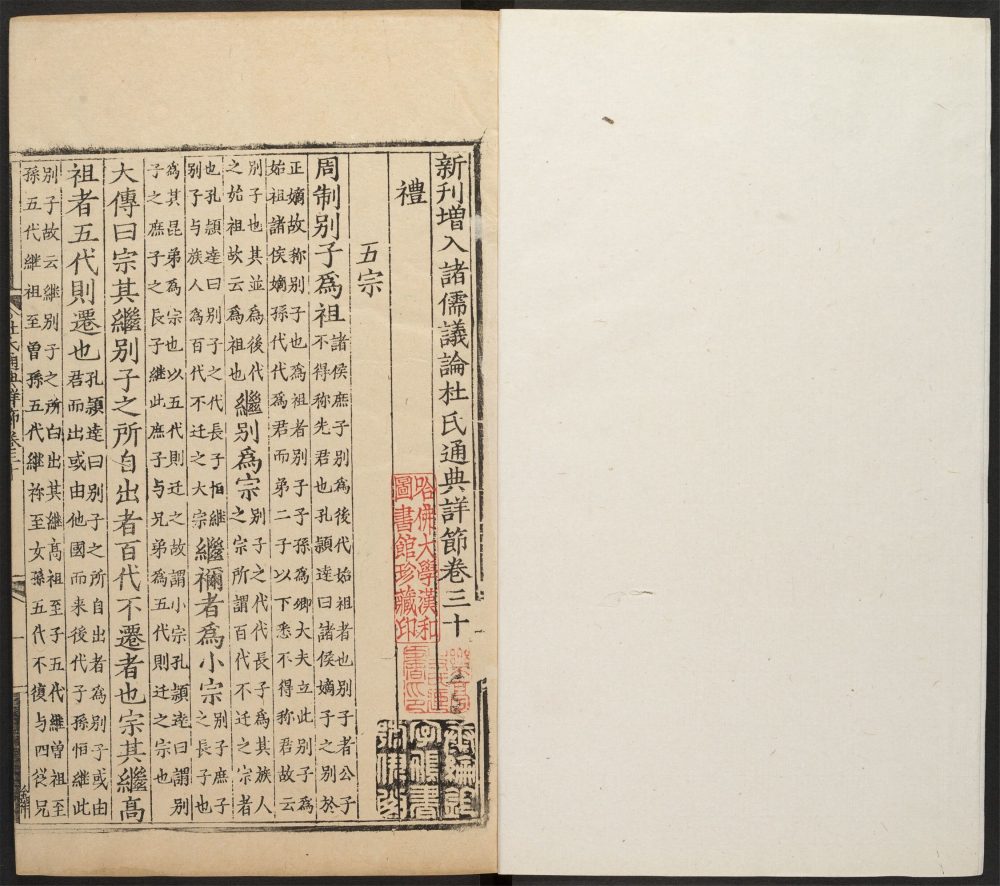 新刊增入諸儒議論杜氏通典詳節卷三十
禮
五宗
周制别子爲祖諸侯庶子别爲後代始祖者也别子者公子
不得称先君也孔頴逹曰諸侯嫡子之别於
正嫡故称别子也爲祖者别子子孫爲卿大夫立此别子爲
始祖諸侯嫡孫代代爲君而弟二子以下悉不得称君故云
别子也其並爲後代
之始祖故云爲祖也繼别爲宗别子之代代長子爲其族人
之宗所謂百代不迁之宗者
也孔頴逹曰别子之代長子恒継
别子与族人爲百代不迁之大宗繼禰者爲小宗别子庶子
之長子也
爲其昆弟爲宗也以五代則迁之故謂小宗孔頴逹曰謂别
子之庶子之長子継此庶子与兄弟爲五代則迁之宗也
大傳曰宗其繼别子之所自出者百代不遷者也宗其繼高
祖者五代則遷也孔頴逹曰别子之所自出者爲别子或由
君而出或由他國而来後代子孫恒継此
别子故云継别子之所白出其継髙祖至子五代継曽祖至
孫五代継祖至曽孫五代継祢至玄孫五代不復与四從兄
杜氏通典詳節卷三十
哈佛大學漢和
圖書館珍藏印